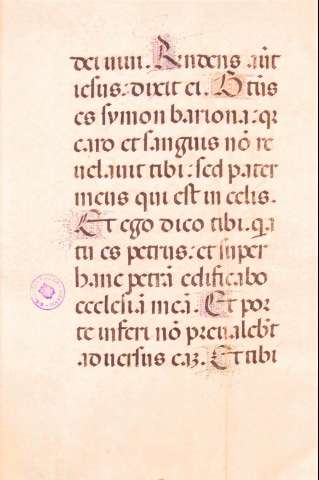 dei uiui. Rn̄dens .aūt
iesus: dixit ei. Btūs
es symon bariona: qr
caro et sanguis nō re
uelauit tibi: sed pater
meus qui est in celis.
Et ego dico tibi. qa
tu es petrus: et super
hanc petrā edificabo
ecclesiā meā. Et por
te inferi nō preualebt̄
aduersus eaz. Et tibi